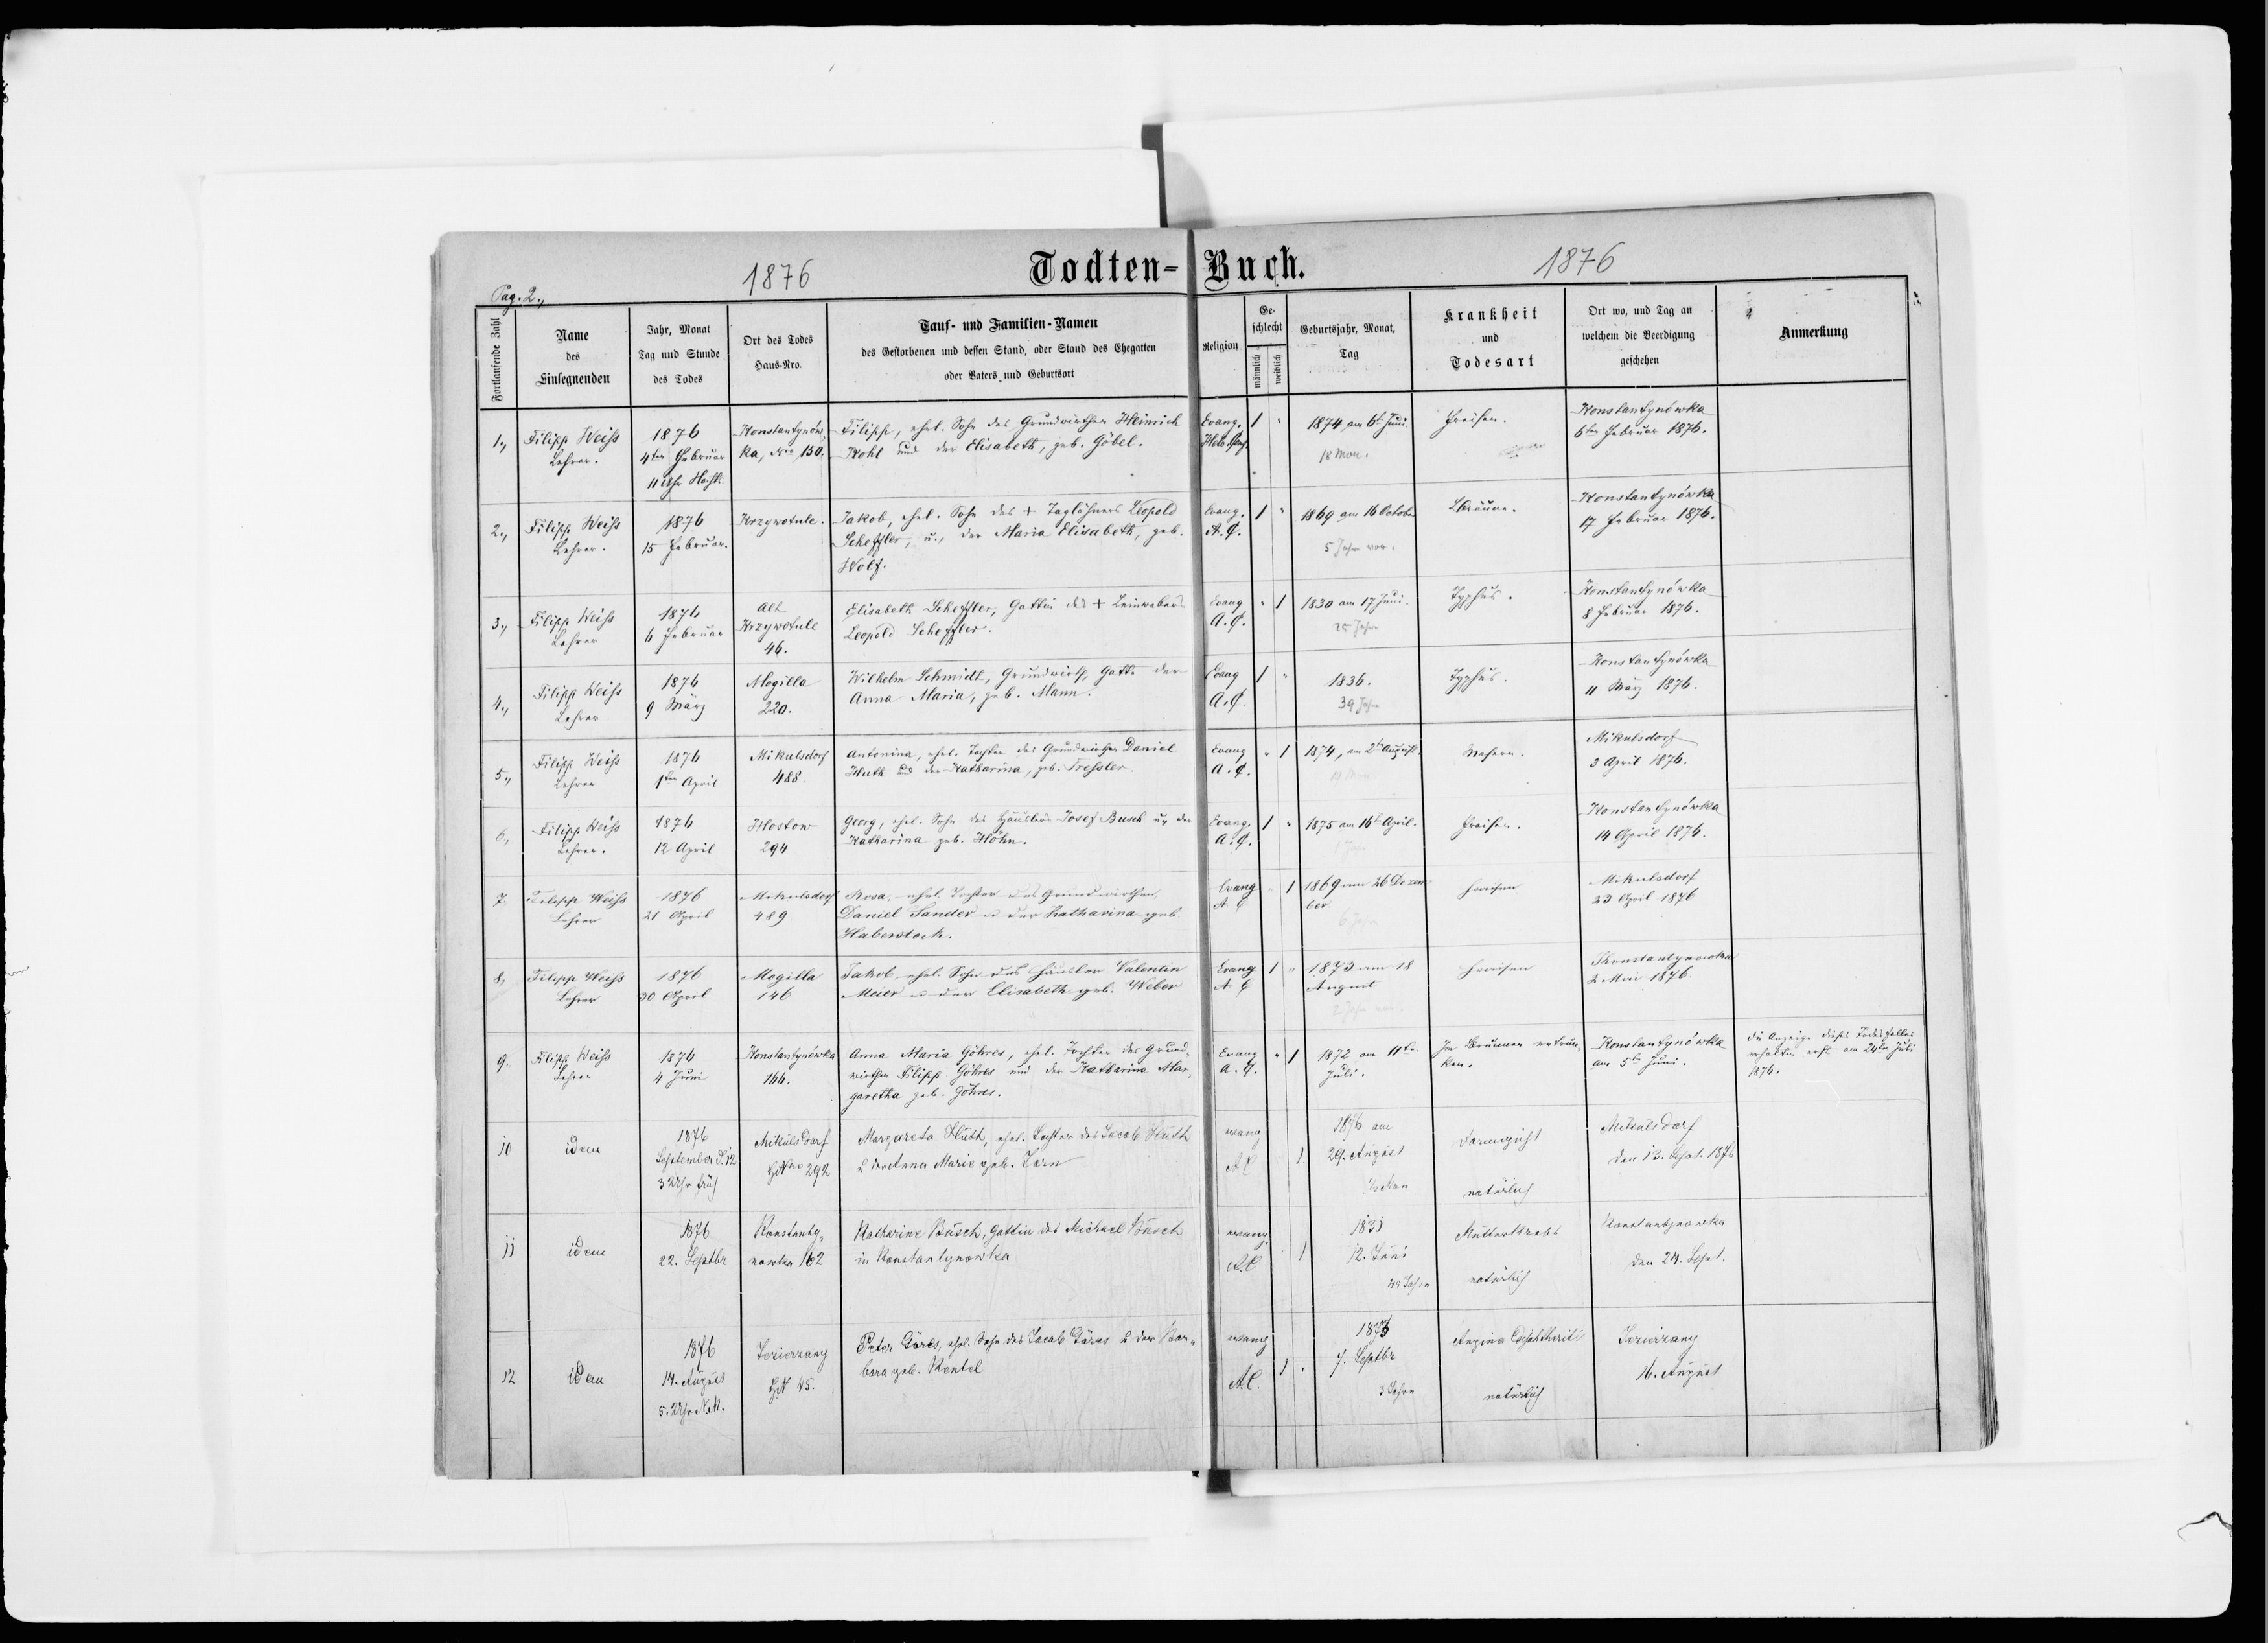 1876
Todten-Buch.
1876
Pag. 2.,
Fortlaufende Zahl
Name
des
Einsegnenden
Jahr, Monat
Tag und Stunde
des Todes
Ort des Todes
Haus-Nro.
Tauf- und Familien-Namen
des Gestorbenen und dessen Stand, oder Stand des Ehegatten
oder Vaters und Geburtsort
Religion
Ge-
schlecht
männlich
weiblich
Geburtsjahr, Monat,
Tag
Krankheit
und
Todesart
Ort wo, und Tag an
welchem die Beerdigung
geschehen
Anmerkung
1.,
Filipp Weiss
Lehrer.
1876
4ten Februar
11 Uhr
Konstantynów-
ka, Nro 150.
Filipp, ehel. Sohn des Grundwirthen Heinrich
Kohl und der Elisabeth, geb. Göbel.
Evang.
1 "
1874 am 6t Juni.
18 Mon.
Fraisen.
Konstantynówka
6ten Februar 1876.
2.,
Filipp Weiss
Lehrer.
1876
15 Februar.
Krzywotule.
Jakob, ehel. Sohn des + Taglöhners Leopold
Scheffler, u., der Maria Elisabeth, geb.
Wolf.
Evang.
A. C.
1 "
1869 am 16 October
5 Jahr
Bräune.
Konstantynówka
17 Februar 1876.
3.,
Filipp Weiss
Lehrer
1876
6 Februar
Alt
Krzywotule
46.
Elisabeth Scheffler, Gattin des + Leinwebers
Leopold Scheffler.
Evang
A. C.
" 1
1830 am 17 Juni.
Jahr
Typhus.
Konstantynówka
8 Februar 1876.
4.,
Filipp Weiss
Lehrer
1876
9 März
Mogilla
220.
Wilhelm Schmidt, Grundwirth, Gatte der
Anna Maria, geb. Mann.
Evang
A. C.
1 "
1836.
39 Jahr
Typhus.
Konstantynówka
11 März 1876.
5.,
Filipp Weiss
Lehrer
1876
1ten April
Mikulsdorf
488.
Antonina, ehel. Tochter des Grundwirthen Daniel
Huth und der Katharina, geb. Fressler.
Evang
A. C.
" 1
1874, am 2t August.
Masern.
Mikulsdorf
3 April 1876.
6.,
Filipp Weiss
Lehrer.
1876
12 April
Hostow
294
Georg, ehel. Sohn des Häuslers Josef Busch u, der
Katharina geb. Höhn.
Evang.
A. C.
1 "
1875 am 16t April.
1 Jahr
Fraisen.
Konstantynówka
14 April 1876.
7.
Filipp Weiss
Lehrer
1876
21 April
Mikulsdorf
489
Rosa, ehel. Tochter des Grundwirthen,
Daniel Sander u der Katharina geb.
Haberstock.
Evang
A C
1
1869 am 26 Dezem
ber
6 Jahr
Fraisen
Mikulsdorf
23 April 1876
8,
Filipp Weiss
Lehrer
1876
30 April
Mogilla
146
Jakob ehel. Sohn des Häusler Valentin
Meier u der Elisabeth geb. Weber
Evang
A C
1 "
1873 am 18
August
2 Jahr
Fraisen
Konstantynowka
2 Mai 1876.
9.
Filipp Weiss
Lehrer
1876
4 Juni
Konstantynówka
166.
Anna Maria Göhres, ehel. Tochter des Grund-
wirthen Filipp Göhres und der Katharina Mar-
garetha geb. Göhres.
Evang
A. C.
" 1
1872 am 11te
Juli.
Im Brunnen ertrun-
ken.
Konstantynówka
am 5te Juni.
Die Anzeige dieses Todesfalles
erhalten erst am 24ten Juli
1876.
10
idem
1876
September d. 12
3 Uhr früh
Mikulsdorf
HNro 292
Margareta Huth, ehel. Tochter des Jacob Huth
u der Anna Marie geb. Zorn
evang
A.C
1
1876 am
29. August
1/2 Mon
natürlich
Mikulsdorf
den 13. Sept. 1876
11
idem
1876
22. Septbr
Konstanty-
nowka 162
Katharine Busch, Gattin des Michael Busch
in Konstantynowka
evang.
A.C
1
1831
12. Juni
45 Jahre
Mutterkrebs
natürlich
Konstantynowka
den 24. Sept.
12
idem
1876
14. August
5. Uhr N.M.
Jezierzany
HN 45.
Peter Göres, ehel. Sohn des Jacob Göres u der Bar-
bara geb. Rentel
evang
A.C.
1 .
1873
7. Septbr
3 Jahre
Angina
natürlich
Jezierzany
16. August